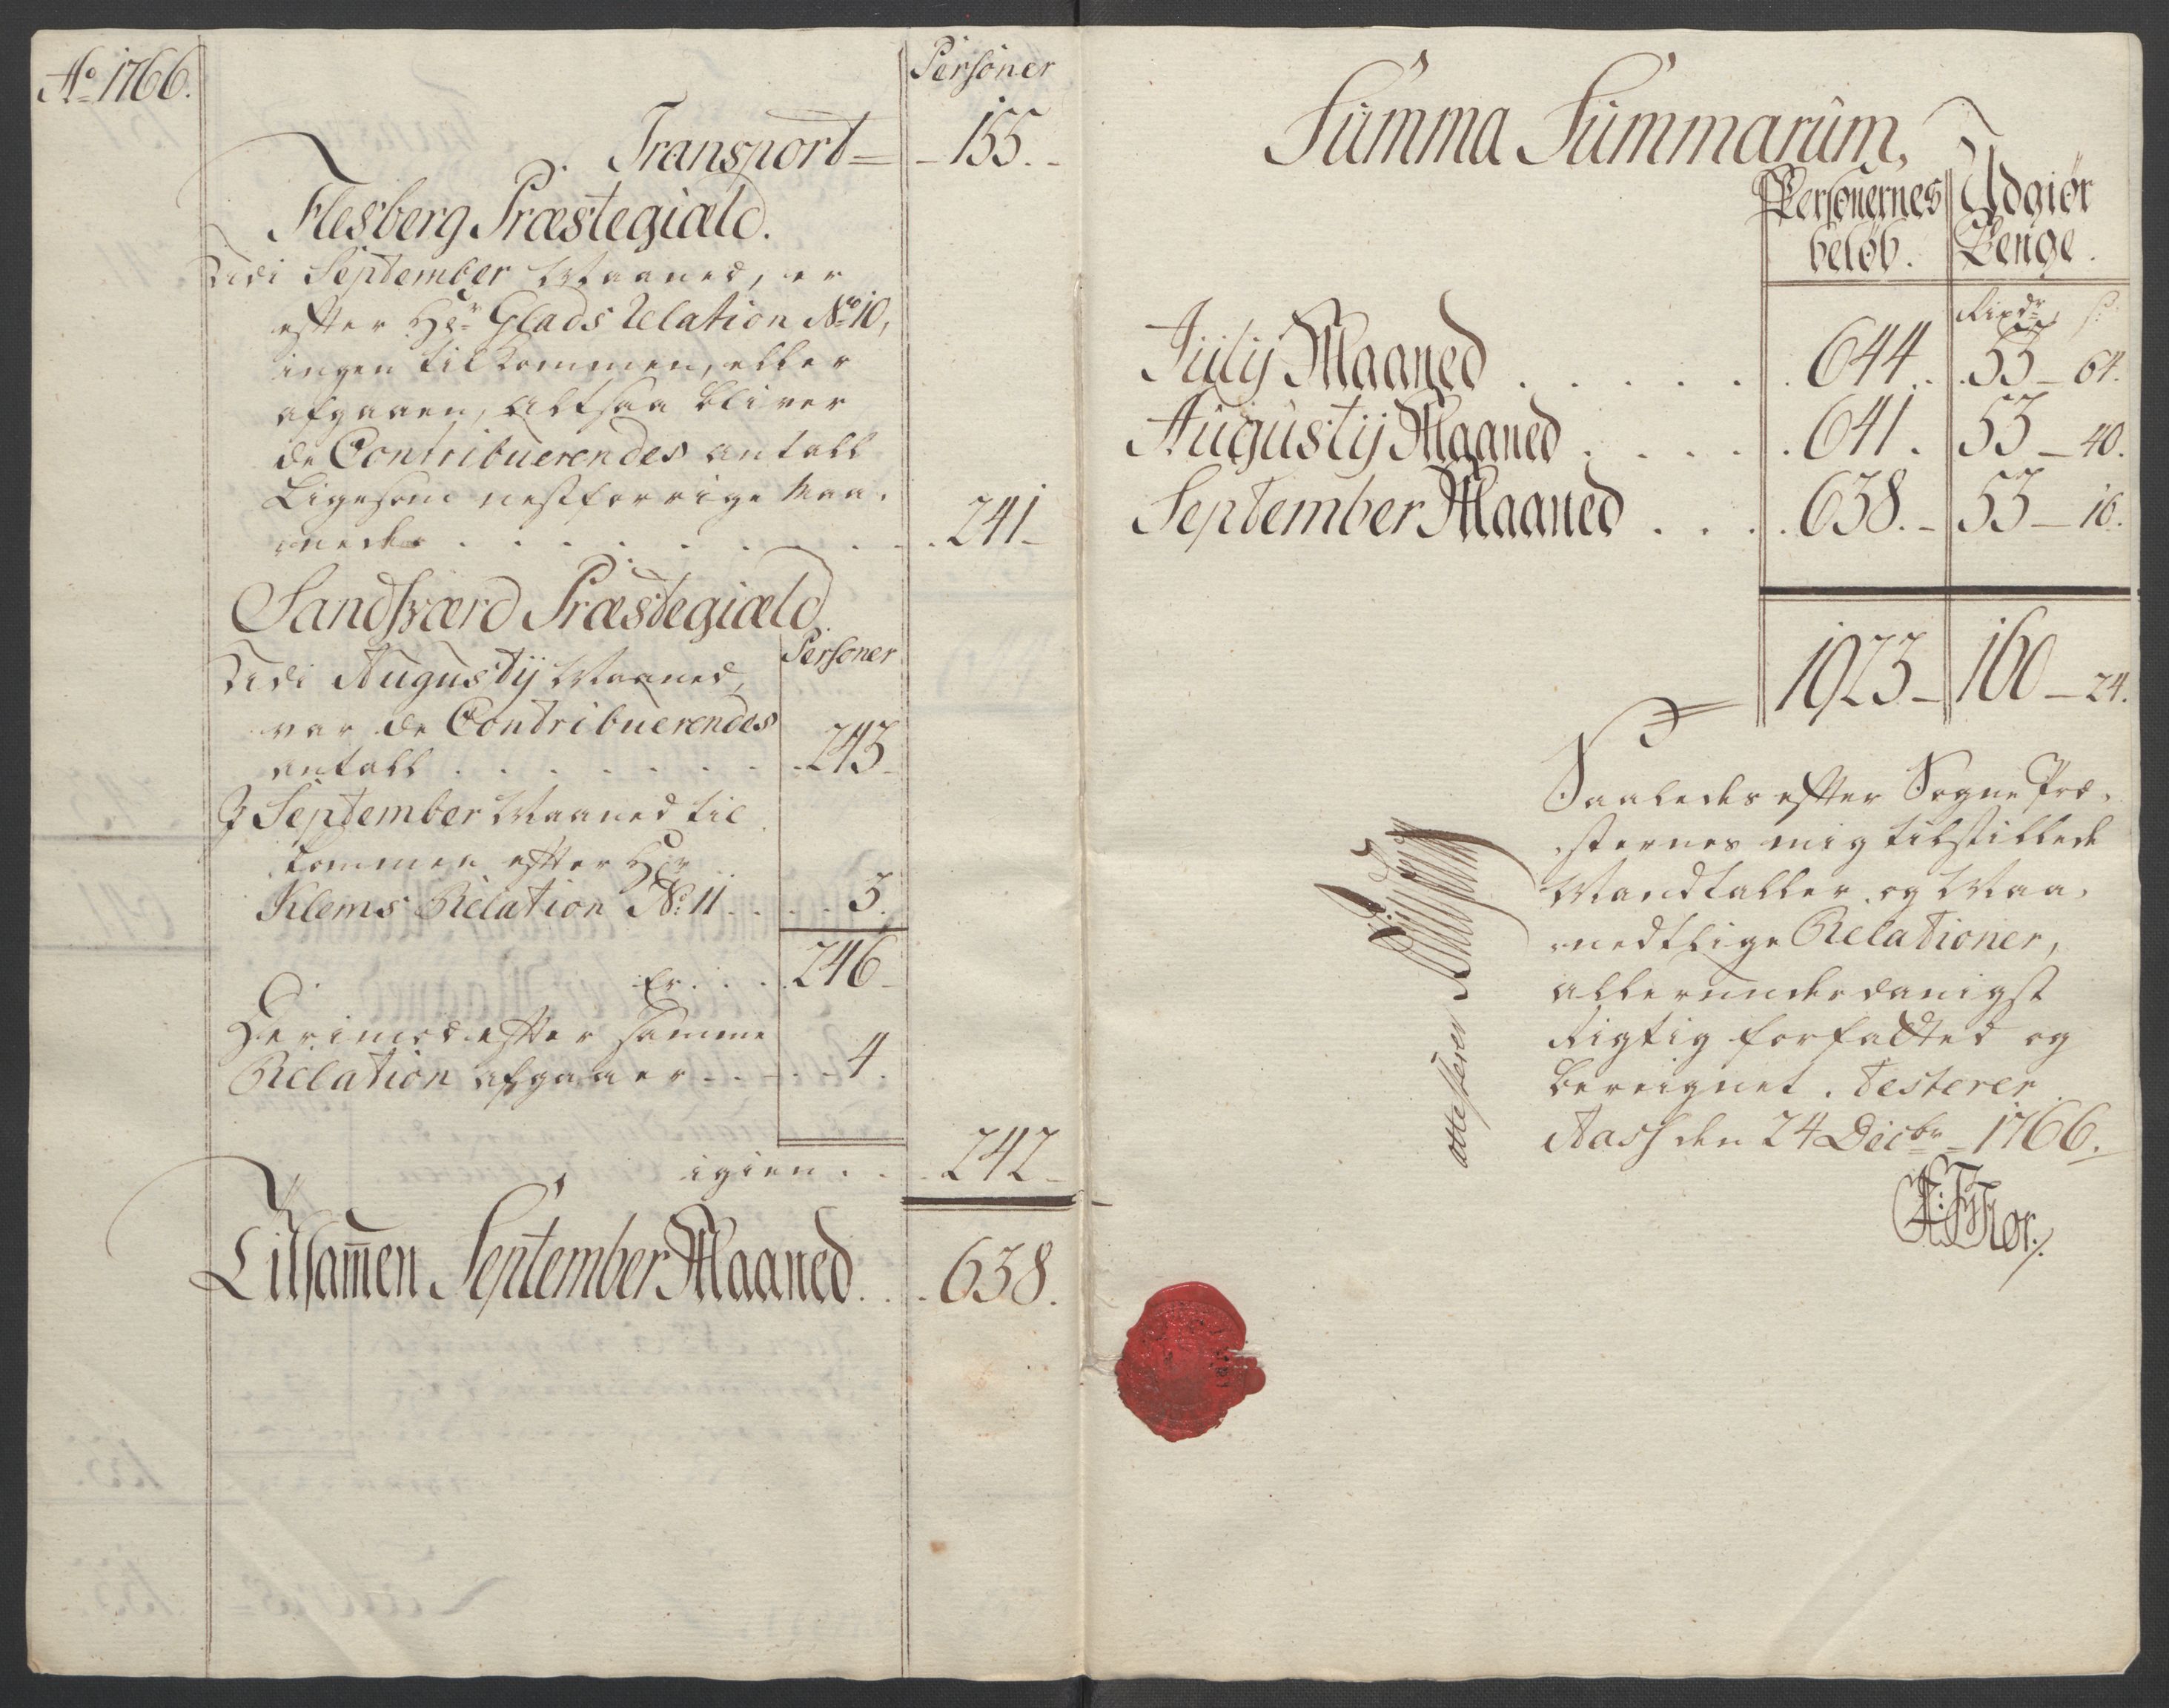 Aº 1766.
Personer
Transport = 155.
Flesberg Præstegiæld.
Udi September Maaned, er
efter Hr. Glads Relation No 10,
ingen tilkommen, eller
afgaaen, altsaa bliver
de Contribuerendes antall
Ligesom nestforrige Maa-
neder . . . . . . . . 241
Sandsværd Præstegiæld.
Personer
Udi Augustij Maaned,
var de Contribuerendes
antall . . . . . . . 243
J September Maaned til
kommen efter Her
Klems Relation No: 11 . . . 3.
Er . . . 246
Herimod efter samme
Relation afgaaer . . . 4.
igien . . 242
Tilsam̄en September Maaned . . 638.
Summa Summarum,
Personernes beløb. Udgiør Penge.
Rixdr. s:
July Maaned . . . . . 644. 53 - 64.
Augustij Maaned . . . . 641. 53 - 40.
September Maaned . . . 638. 53 - 16.
1923 - 160 - 24.
Saaledes efter Sogne Præ-
sternes mig tilstillede
Mandtaller og Maa-
nedtlige Relationer,
allerunderdanigst
Rigtig forfatted og
bereignet. Testerer
Aass den 24 Decbr. 1766.
attesterer